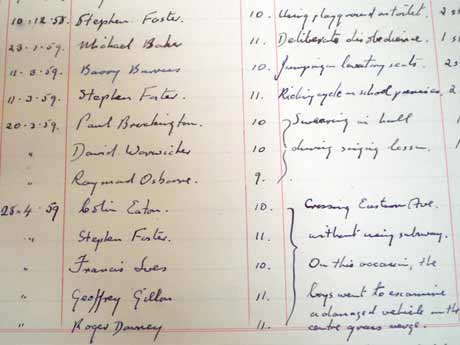 10.12.58. Stephen Foster. 10. Using playground as toilet. 2 s
23.1.59. Michael Baker 11. Deliberate disobedience. 1 s
11.3.59. Barry 10. Jumping on lavatory seats. 2s
11.3.59. Stephen Foster. 11. Riding cycle on school premises, 2
20.3.59. Paul Brockington. 10 Swearing in hall
" David Warwicker 10 during singing lesson.
" Raymond Osborne. 9.
25.4.59 Colin Eaton. 10. Crossing Eastern Ave.
" Stephen Foster. 11. without using subway.
" Francis Ives 10. On this occasion, the
" Geoffrey Gillon 11. boys went to examine
a damaged vehicle in the
" Roger Downey 11. centre grass verge.